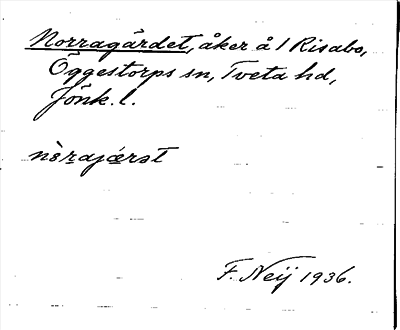 Norragärdet, åker å 1 Risabo,
Öggestorps sn, Tveta hd,
Jönk. l.
nèrajæ̀rət
F. Neij 1936.